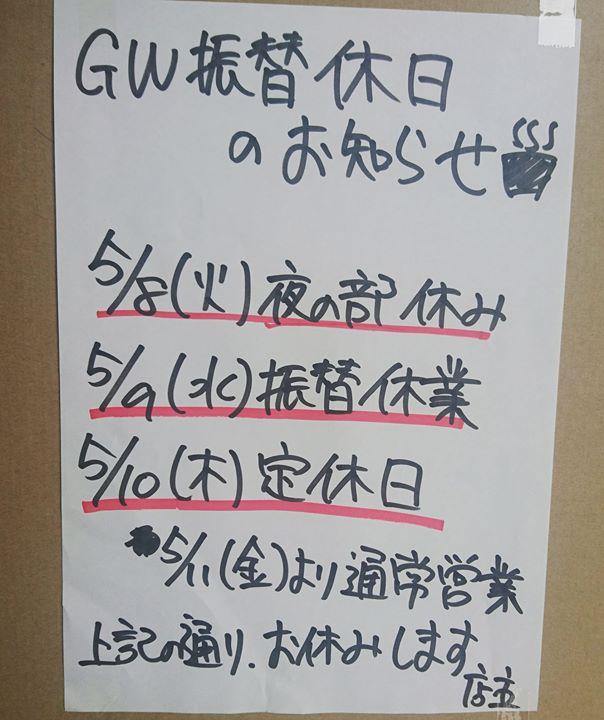 GW振替休日
のお知らせ
5/8(火)夜の部休み
5/9(水)振替休業
5/10(木)定休日
5/11(金)より通常営業
上記の通り、お休みします
店主